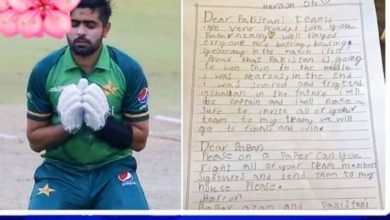 Haroon
Dear Pakistani team,
I am very
Babar Azam well played
everyone nice batting, bowling
yesterday in the match I felt
that Pakistan is going
to win then in the middle
I was nearous, in the end
I was scared and
inshallah in the future I will
be certain and I will make
sure to invite all of your
team to my team, we will
go to finals and win.
Dear Babar
Please on a paper can you
right all of your team member
signatures and send them to my
house Please.
Haroon
Babar azam and Pakistani
pepsi